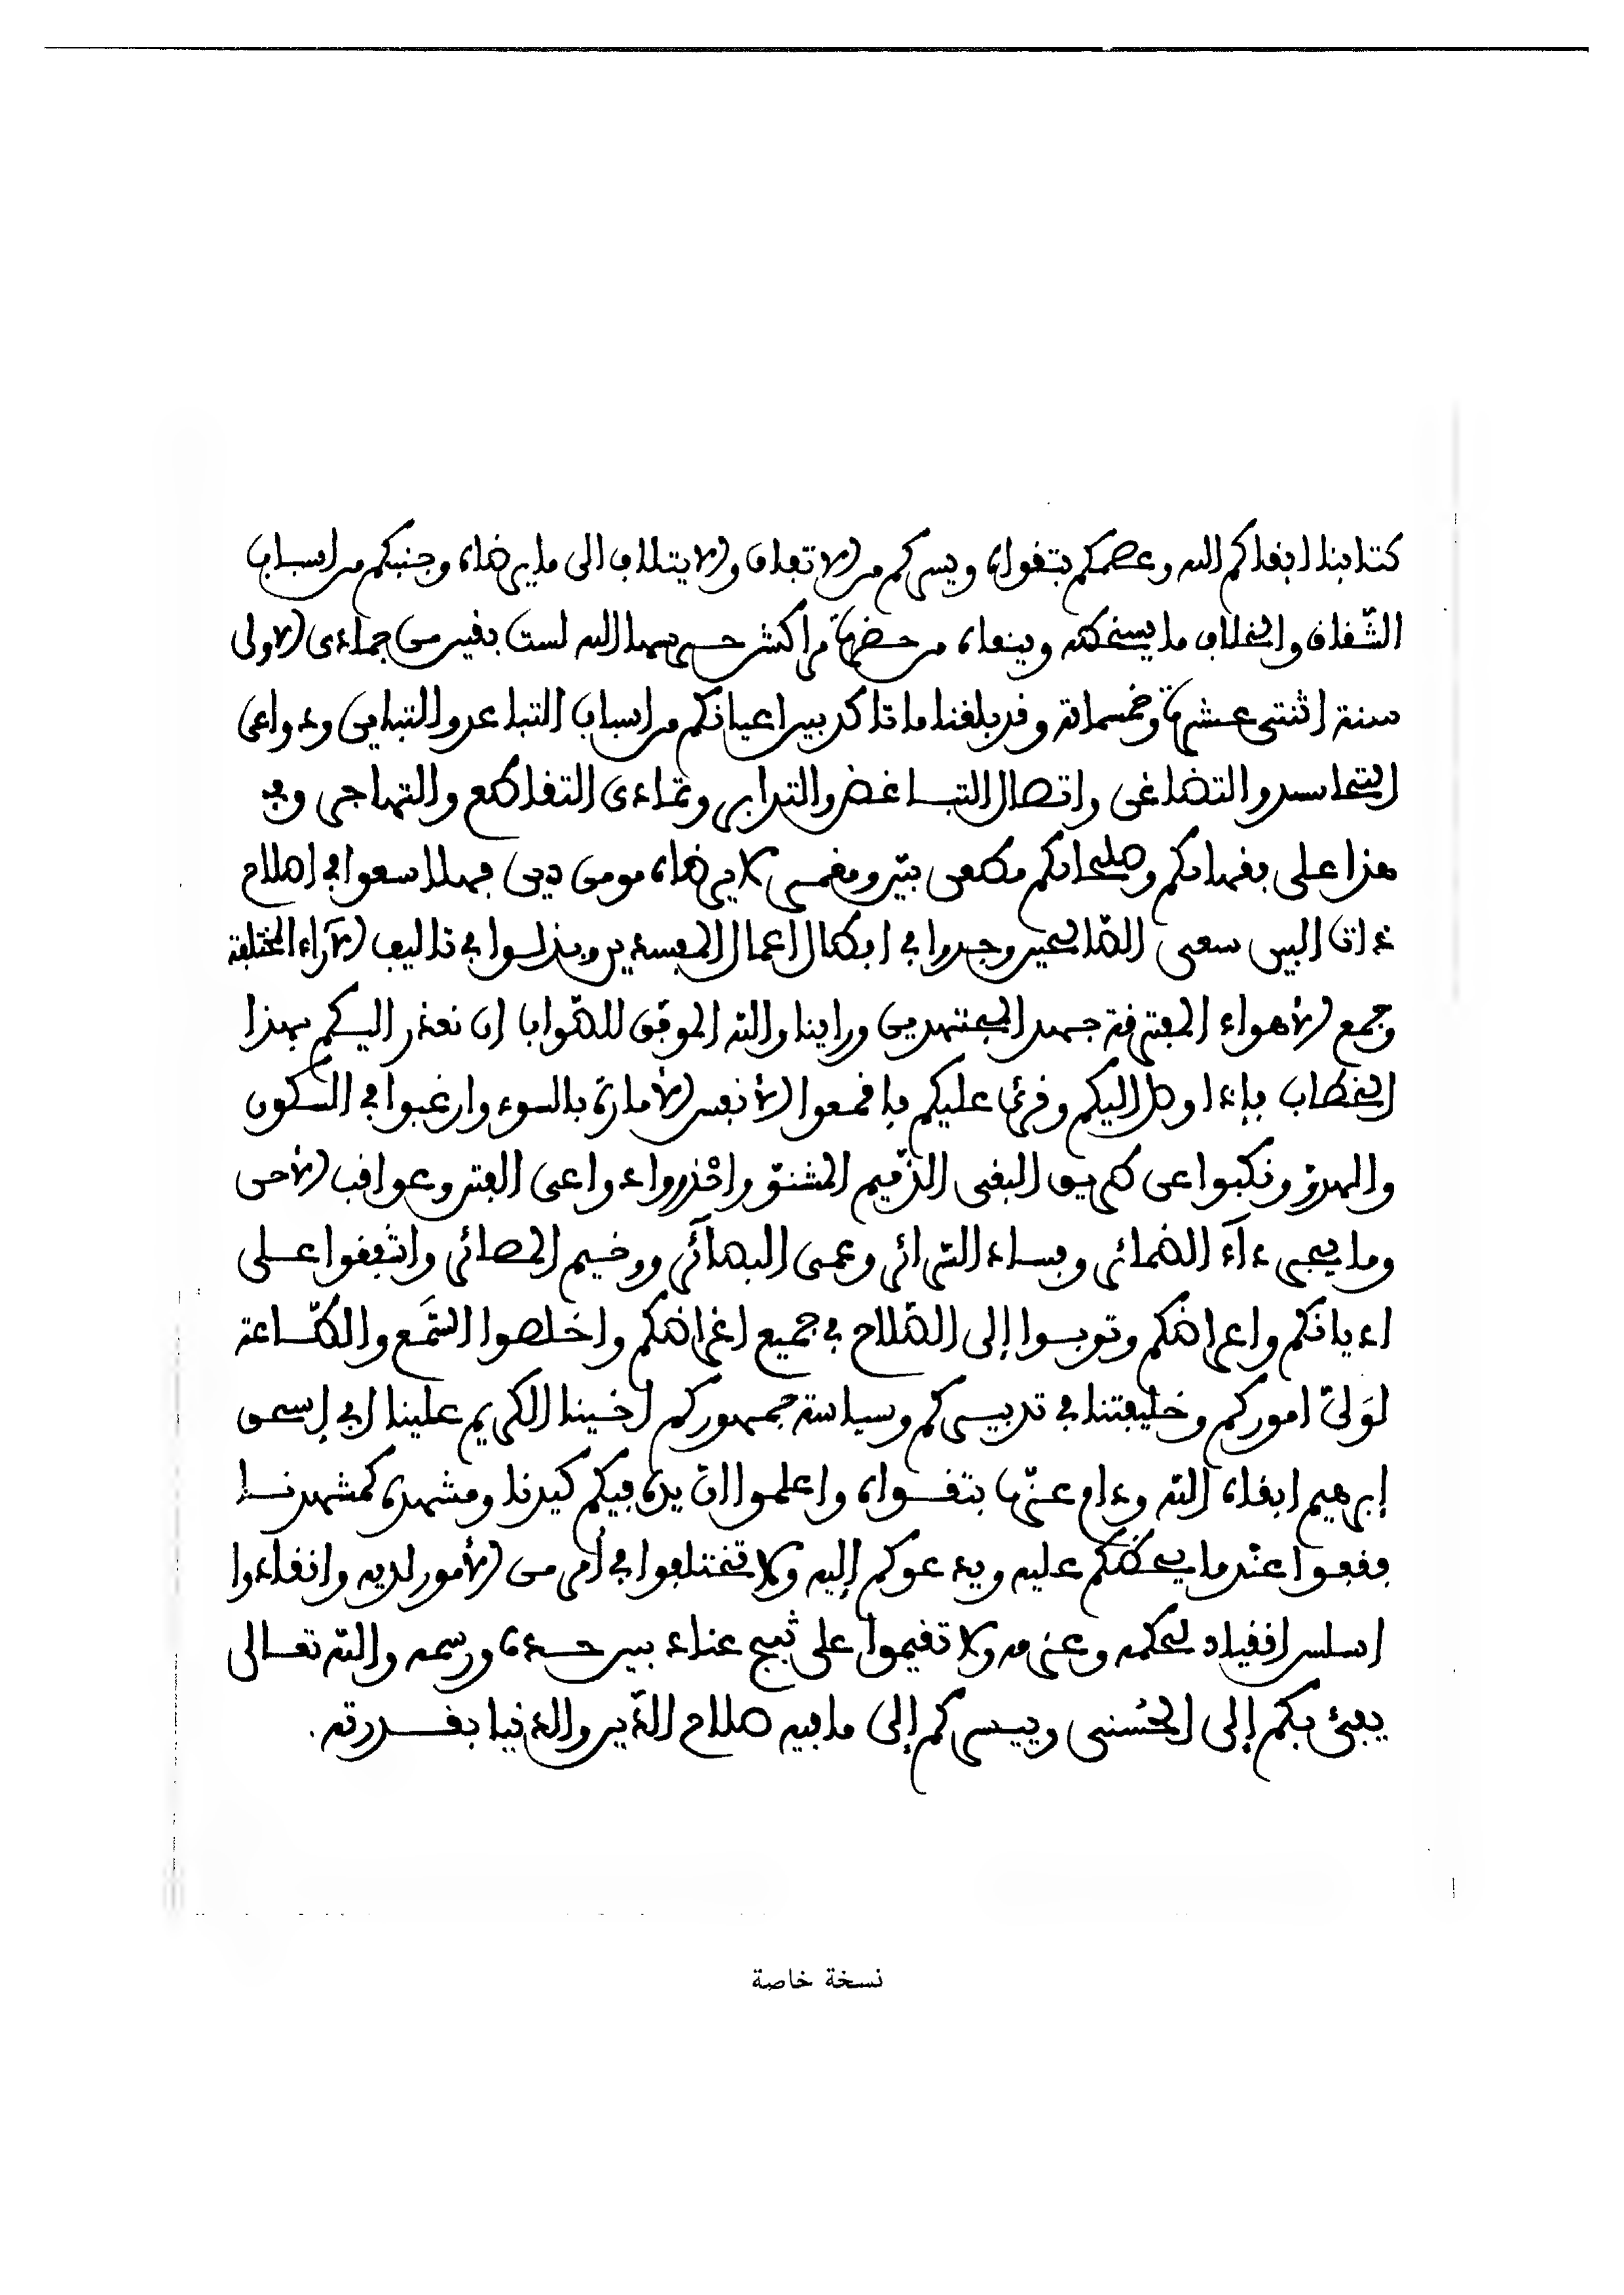 كتابنا ابقاكم الله وعصمكم بتقواه ويسركم من الاتفاق والايتلاف الى ما يرضاه وجنبكم من اسباب
الشّقاق والخلاف ما يسخطه وينعاه من حضرة مراكش حرسها الله لست بقين من جمادى الاولى
سنة اثنتى عشرة وخمسمائة وقد بلغنا ما تاكد بين اعيانكم من اسباب التباعد والتباين ودواعى
التحاسد والتضاغن واتصال التباغض والتدابر وتمادى التقاطع والتهاجر وفى
هذا على فقهائكم وصلحائكم مطعن بيّن ومغمز لا يرضاه مومن دين فهلا سعوا في اصلاح
ذات البين سعى الصّالحين وجدوا في ابطال اعمال المفسدين وبذلوا في تاليف الآراء المختلفة
وجمع الأهواء المفترقة جهد المجتهدين وراينا والله الموفق للصّواب ان نعذر اليكم بهذا
الخطاب فإذا وصل اليكم وقرئ عليكم فاقمعوا الأنفس الأمارة بالسوء وارغبوا في السّكون
والهدوّ ونكبوا عن طريق البغى الذّميم المشنوّ واحْذروا دواعى الفتن وعواقب الأحن
وما يجر دآء الضمائر وفساد السّرائر وعمى البصآئر ووخيم المصائر واشفقوا على
اديانكم واعراضكم وتوبوا إلى الصّلاح في جميع اغراضكم واخلصوا السَّمع والطّاعة
لوَلىّ اموركم وخليفتنا في تدبيركم وسياسة جمهوركم اخينا الكريم علينا ابي إسحق
إبرهيم ابقاه الله ودام عزّه بتقواه واعلموا انّ يده فيكم كيدنا ومشهده كمشهدنا
فقفوا عنْد ما يحضّكم عليه ويدعوكم إليه ولا تختلفوا في أمر من الأمور لديه وانقادوا
اسلس انقياد لحكمه وعزمه ولا تقيموا على ثبج عناد بين حده ورسمه والله تعالى
يفئ بكم إلى الحُسنى وييسركم إلى ما فيه صلاح الدّين والدنيا بقدرته.
نسخة خاصة